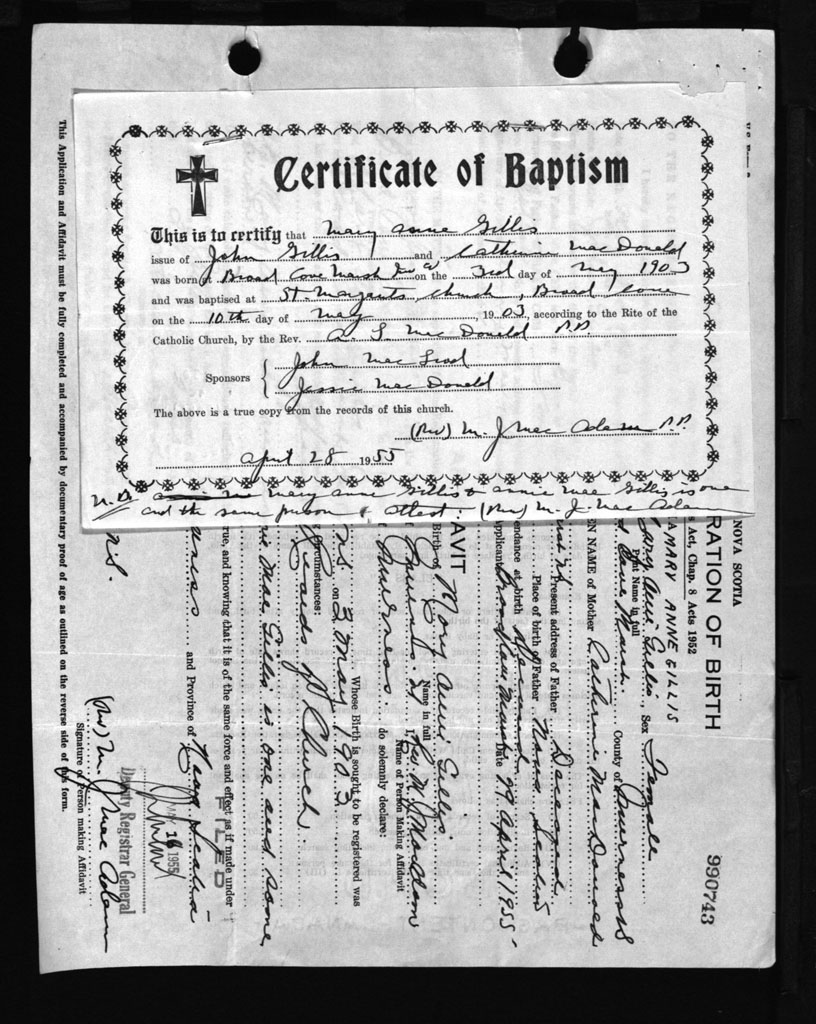 Certificate of Baptism
This is to certify that Mary Anne Gillis
issue of John Gillis and Catherine MacDonald
was born at Broad Cove Marsh on the 3rd day of May 1903
and was baptised at St. Margarets Church, Broad Cove
on the 10th day of May, 1903, according to the Rite of the
Catholic Church, by the Rev. A. L. MacDonald P.P.
Sponsors { John MacLeod
Jessie MacDonald
The above is a true copy from the records of this church.
(Rev) M. J. MacAdam P.P.
April 28 1955
N.B. Mary Anne Gillis & Annie Mae Gillis is one
and the same person & attest - (Rev) M. J. MacAdam
NOVA SCOTIA
Act, Chap. 8 Acts 1952
RATION OF BIRTH
990743
MARY ANNE GILLIS
Mary Ann Gillis, Sex Female
Print Name in full
Cove Marsh County of Inverness
EN NAME of Mother Catherine MacDonald
Present address of Father Deceased
Place of birth of Father Nova Scotia
endance at birth Deceased
Applicant Broad Cove Marsh Date 29 April 1955
AVIT
Birth of Mary Ann Gillis
Name in full
Inverness I, Rev. M. J. MacAdam
Name of Person Making Affidavit
Inverness do solemnly declare:
Whose Birth is sought to be registered was
N.S. on 3 May 1903
circumstances:
Records of Church.
Mae Gillis is one and same
rue, and knowing that it is of the same force and effect as if made under
FILED
and Province of Nova Scotia
N.S.
MAY 18 1955
Deputy Registrar General
(Rev) M. J. MacAdam
Signature of Person making Affidavit
This Application and Affidavit must be fully completed and accompanied by documentary proof of age as outlined on the reverse side of this form.